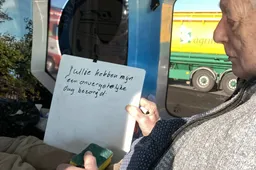 Jullie hebben mijn
een onvergetelijke
dag bezorgd.
agri